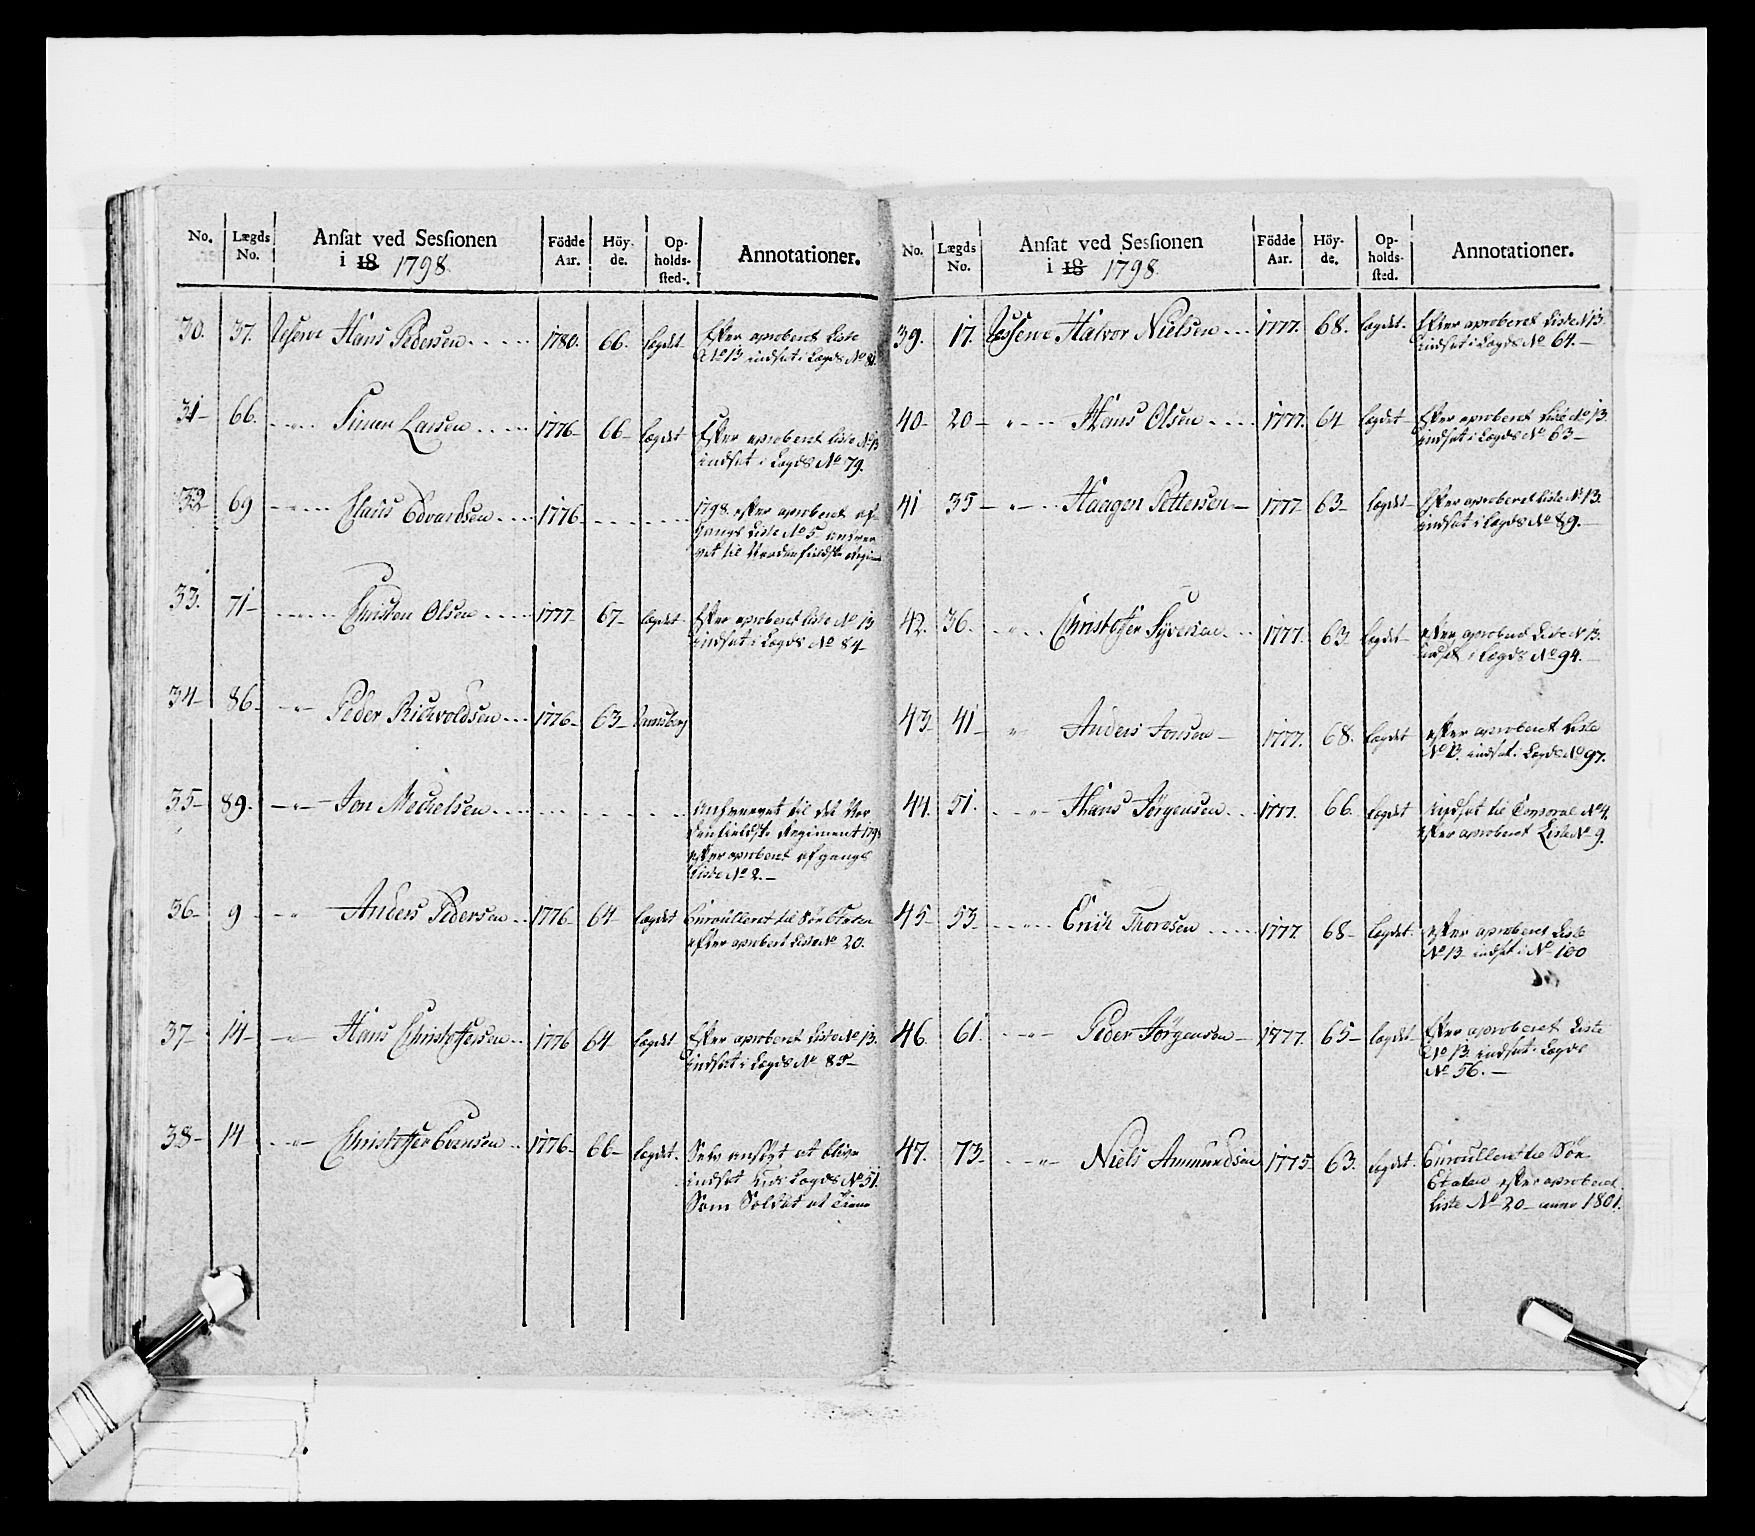 No. Lægds No. Ansat ved Sessionen i 18 1798. Födde Aar. Höyde. Opholdssted. Annotationer.
30. 37. Hans Pedersen 1780. 66. lægdet Efter aproberet Liste
No 13 indsat i Lægds No 81.
31 66. Simen Larsen 1776 66 lægdet Efter aproberet Liste No 13
indsat i Lægds No 79.
32 69 Claus Edvardsen 1776 1798 efter aproberet af
gangs Liste No 5
33. 71 Christen Olsen 1777 67 lægdet Efter aproberet Liste No 13
indsat i Lægds No 84
34 86 Peder Richvoldsen 1776 63
35 89. Jon Mechelsen til det
Regiment 1798
efter aproberet afgangs
Liste No 2.
36 9 Anders Pedersen 1776 64 lægdet Enroulleret til Søe Etaten
efter aprobert Liste No 20.
37 14 Hans Christoffersen 1776 64 lægdet Efter aproberet Liste No 13.
indsat i Lægds No 85
38 14 Christoffer Evensen 1776 66 lægdet. Selv at blive
indsat Lægds No 51.
Som Soldat at tiene
No. Lægds No. Ansat ved Sessionen i 18 1798. Födde Aar. Höyde. Opholdssted. Annotationer.
39. 17. Halvor Nielsen 1777. 68. lægdet. Efter aproberet Liste No 13.
indsat i Lægds No 64.
40 20 Hans Olsen 1777. 64 lægdet Efter aproberet Liste No 13.
indsat i Lægds No 63
41 35 Haagen Pettersen 1777 63 lægdet Efter aproberet Liste No 13.
indsat i Lægds No 89.
42. 36. Christoffer Syversen 1777. 63 lægdet efter aproberet Liste No 13.
indsat i Lægds No 94.
43 41 Anders Jonsen 1777. 68. lægdet efter aproberet Liste
No 13. indsat i Lægds No 97.
44. 51. Hans Jørgensen 1777. 66. lægdet indsat til Corporal No 4.
efter aproberet Liste No 9.
45 53 Erich Thoresen 1777 68 lægdet. efter aproberet Liste
No 13 indsat i No 100
46. 61. Peder Jørgensen 1777. 65 lægdet Efter aproberet Liste
No 13. indsat i Lægds
No 56.
47. 73 Niels Ammundsen 1775 63. lægdet. Enroulleret til Søe
Etaten efter aproberet
Liste No 20 anno 1801.